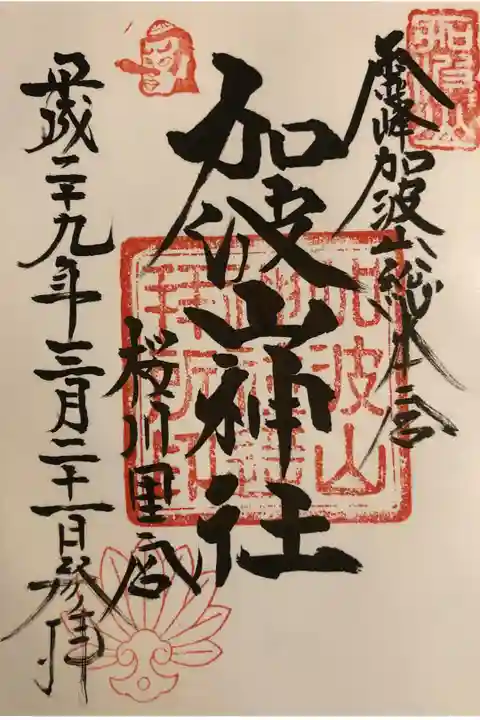 霊峰加波山総本宮
加波山神社
桜川里宮
平成二十九年三月二十一日登拝
加波山
拝所印